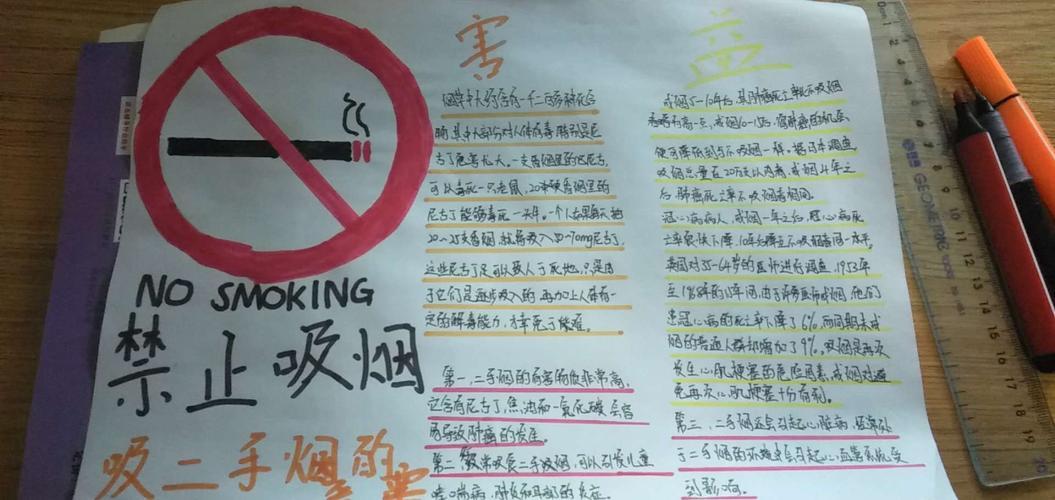 NO SMOKING
禁止吸烟
吸二手烟的害
害
烟草中大约含有一千二百多种化合
物,其中大部分对人体有毒,特别是尼
古丁危害尤大。一支香烟里的尼古丁,
可以毒死一只老鼠,20支香烟里的
尼古丁能够毒死一头牛。一个人如果每天抽
20~25支香烟,就将吸入50-70mg尼古丁,
这些尼古丁足可以致人于死地,只是由
于它们是逐步吸入的,再加上人体有一
定的解毒能力,才幸免于难。
第一,二手烟的有害物质非常高,
它含有尼古丁,焦油和一氧化碳,会容
易导致肺癌的发生。
第二,经常吸食二手吸烟,可以引发儿童
哮喘病,肺炎和耳部的炎症。
益
戒烟5-10年后,其肺癌死亡率较不吸烟
戒烟10-15后,患肺癌的机会,
便可降低到与不吸烟一样。据日本调查
吸烟总量在20万支以内者,戒烟4年之
后,肺癌死亡率与吸烟者相同。
冠心病病人,戒烟一年之后,冠心病死
亡率很快下降,10年后降至不吸烟者同一水平。
英国对35-64岁的医师进行调查,1953年
至1968年的15年间,由于许多医师戒烟,他们
患冠心病的死亡率下降了6%,而同期未戒
烟的普通人群却增加了9%。吸烟是再次
发生心肌梗塞的危险因素,戒烟对避
免再次心肌梗塞十分有利。
第三,二手烟还会引起心脏病,经常处
于二手烟的环境中会引起心血管系统受
到影响。
GEOMETRIC